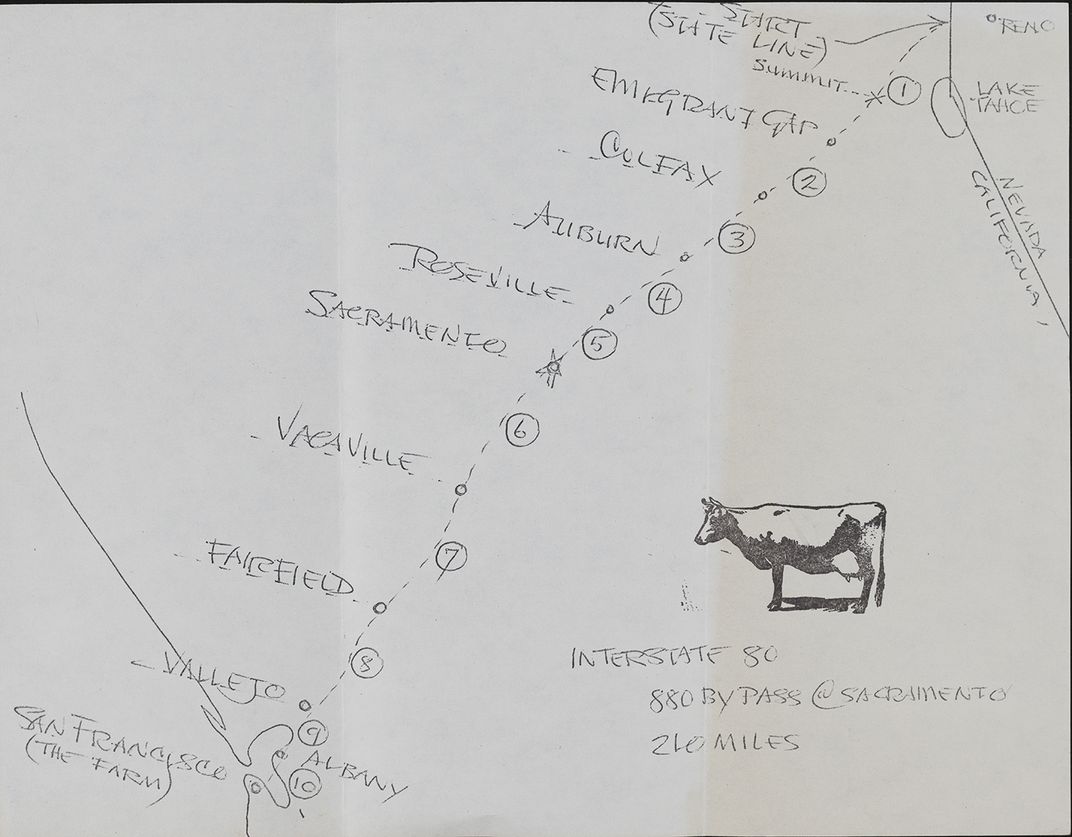 START
(STATE LINE)
RENO
SUMMIT
①
LAKE
TAHOE
EMIGRANT GAP
COLFAX
②
NEVADA
CALIFORNIA
AUBURN
③
ROSEVILLE
④
SACRAMENTO
⑤
⑥
VACAVILLE
⑦
FAIRFIELD
⑧
VALLEJO
⑨
SAN FRANCISCO
(THE FARM)
ALBANY
⑩
INTERSTATE 80
880 BY PASS @ SACRAMENTO
210 MILES